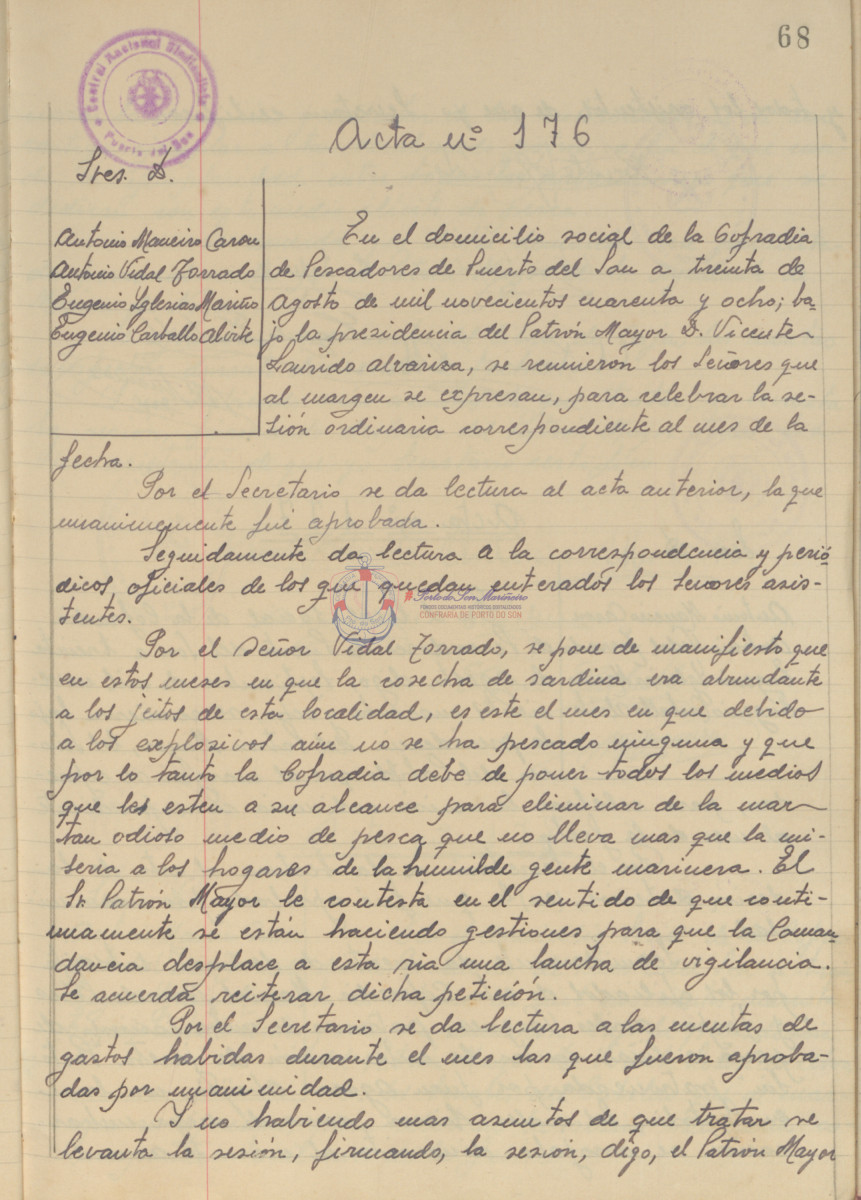 68
Central Nacional Sindicalista
Puerto del Son
Acta nº 176
Sres. D.
Antonio Maneiro Carou
Antonio Vidal Torrado
Eugenio Yglesias Mariño
Eugenio Carballo Alvite
En el domicilio social de la Cofradia
de Pescadores de Puerto del Son a treinta de
Agosto de mil novecientos cuarenta y ocho; ba-
jo la presidencia del Patrón Mayor D. Vicente
Laurido Alvariza, se reunieron los Señores que
al margen se expresan, para celebrar la se-
sión ordinaria correspondiente al mes de la
fecha.
Por el Secretario se da lectura al acta anterior, la que
unanimemente fué aprobada.
Seguidamente da lectura a la correspondencia y perió
dicos oficiales de los que quedan enterados los Senores asis-
tentes.
Porto do Son Mariñeiro
FONDOS DOCUMENTAIS HISTÓRICOS DIXITALIZADOS
CONFRARÍA DE PORTO DO SON
Por el Señor Vidal Torrado, se pone de manifiesto que
en estos meses en que la cosecha de sardina era abundante
a los jeitos de esta localidad, es este el mes en que debido
a los explosivos aún no se ha pescado ninguna y que
por lo tanto la Cofradia debe de poner todos los medios
que les esten a su alcance para eliminar de la mar
tan odioso medio de pesca que no lleva mas que la mi-
seria a los hogares de la humilde gente marinera. El
Sr. Patrón Mayor le contesta en el sentido de que conti-
nuamente se están haciendo gestiones para que la Coman-
dancia desplace a esta ria una lancha de vigilancia.
Se acuerda reiterar dicha petición.
Por el Secretario se da lectura a las cuentas de
gastos habidas durante el mes las que fueron aproba-
das por unanimidad.
Y no habiendo mas asuntos de que tratar se
levanta la sesión, firmando, la sesión, digo, el Patrón Mayor